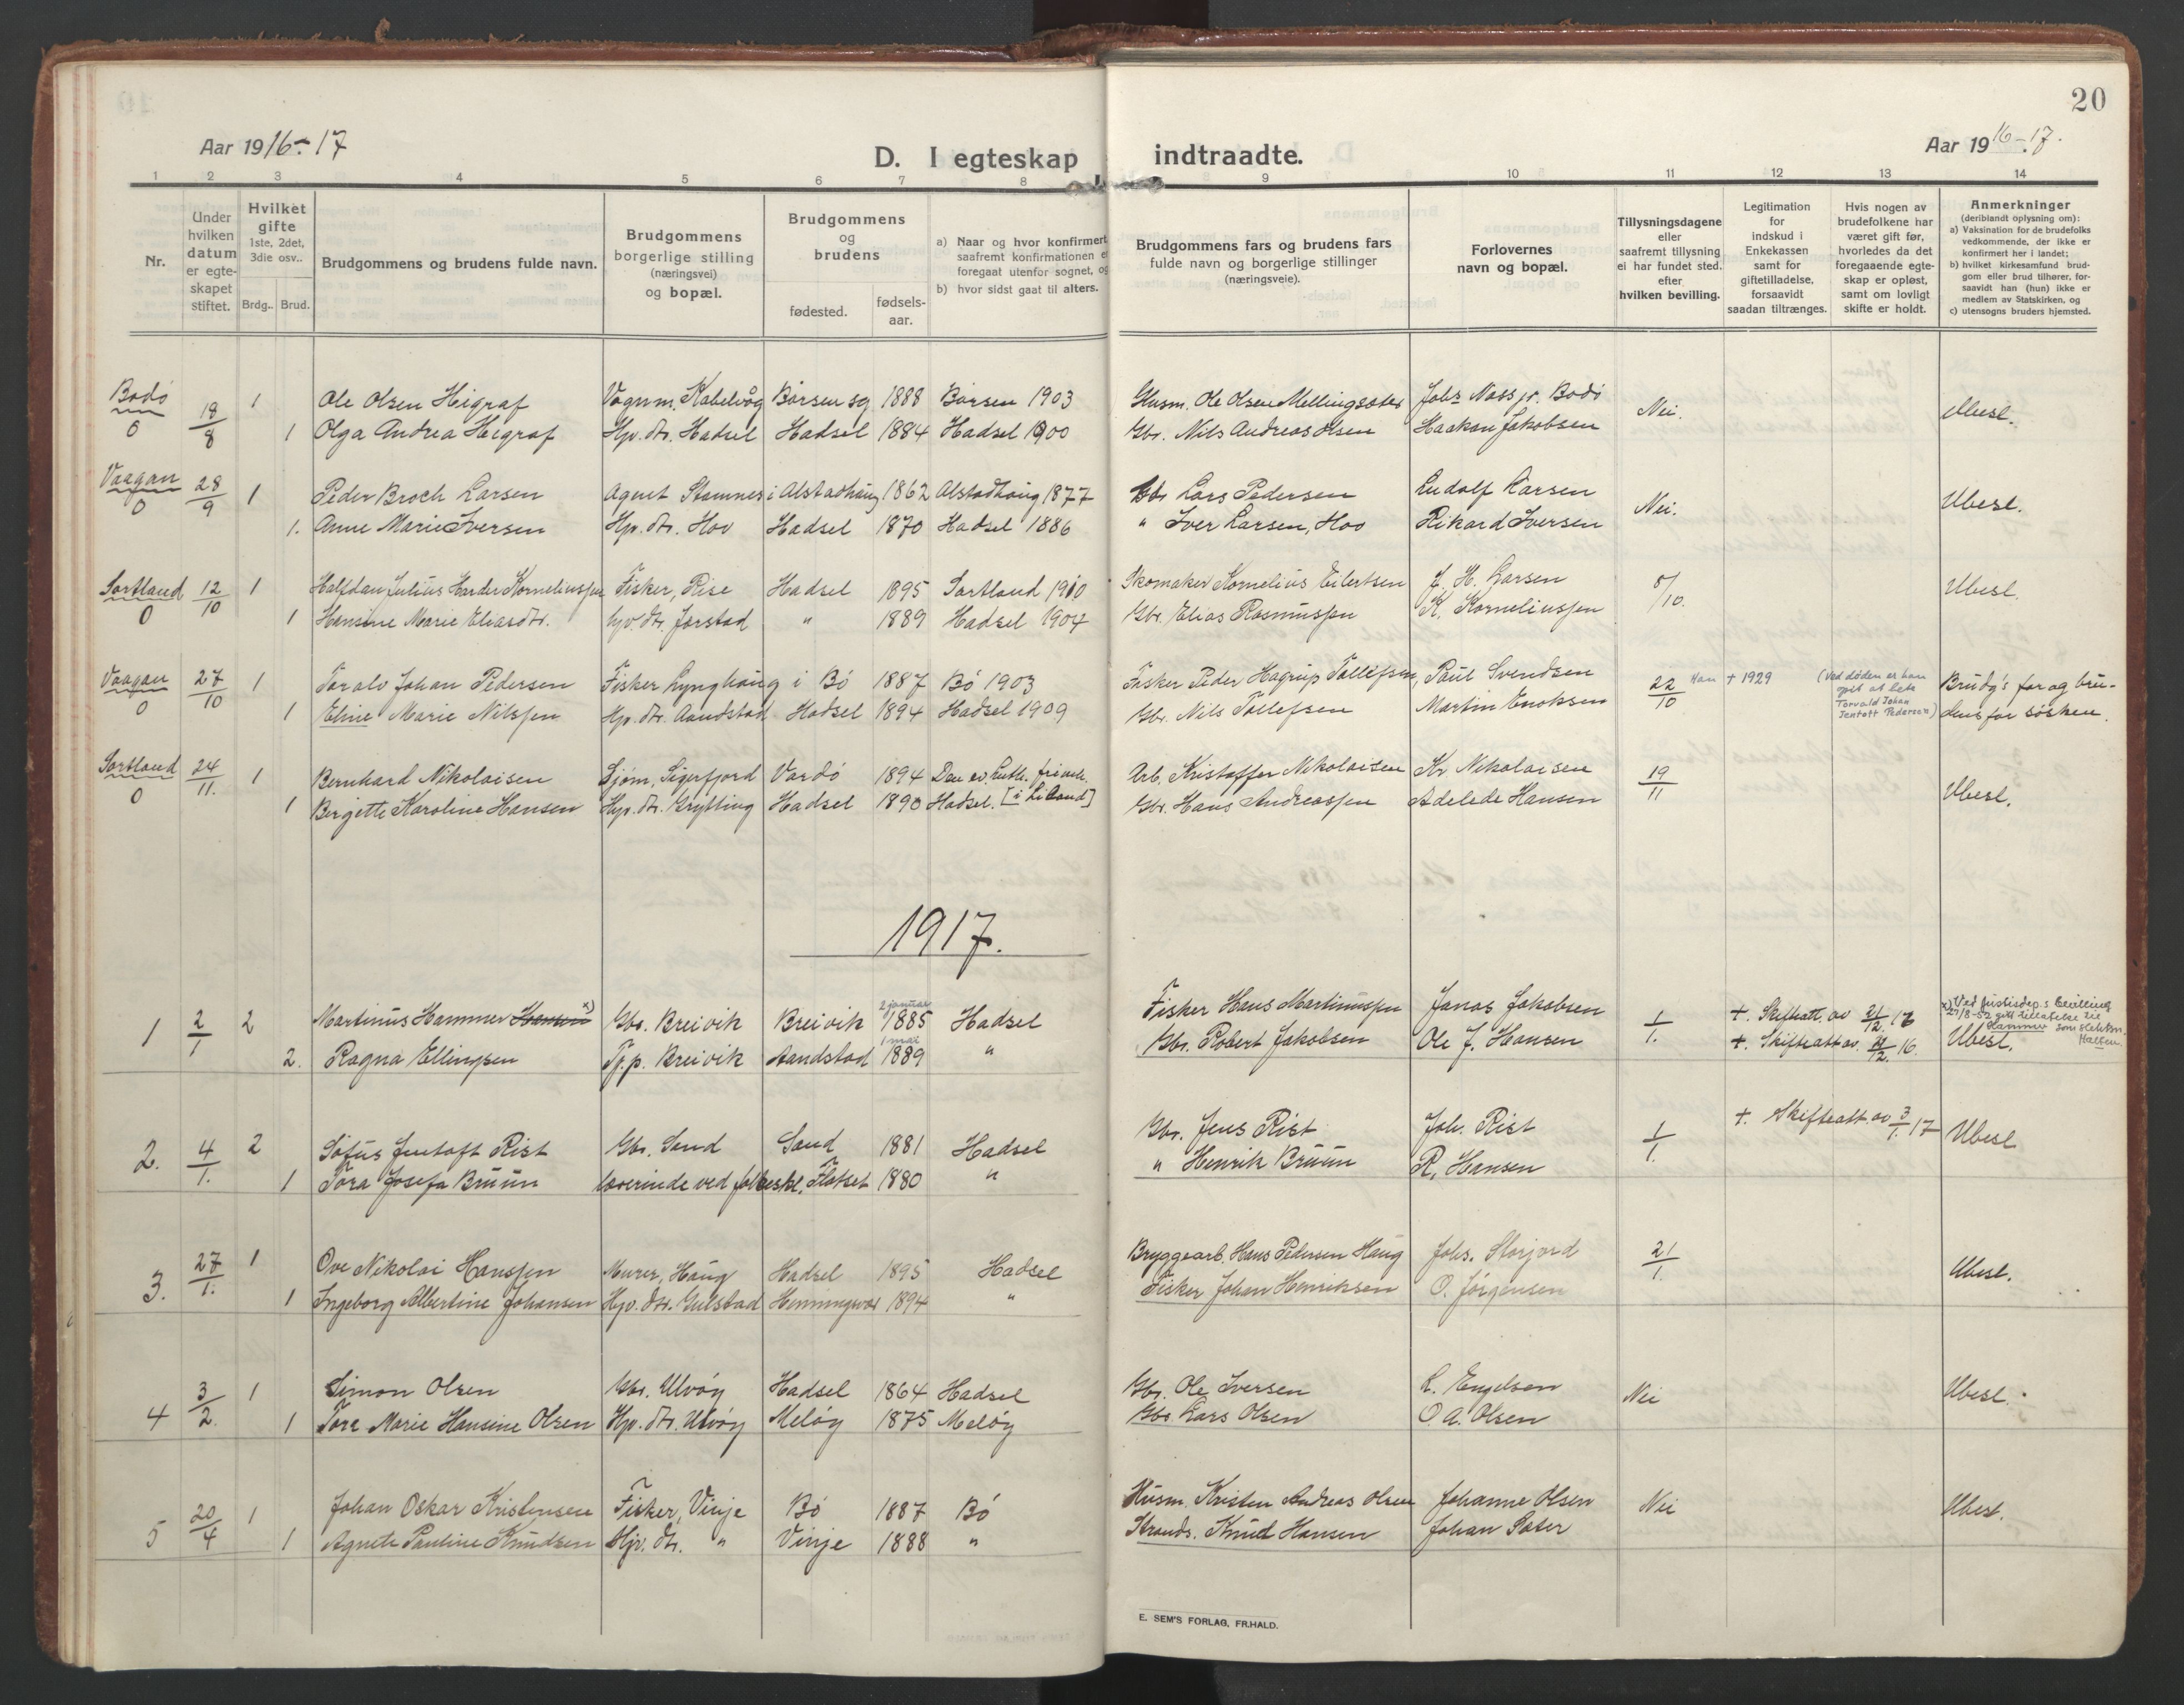 20
Aar 1916-17
D. I egteskap indtraadte.
Aar 1916-17.
1 2 3 4 5 6 7 8 9 10 11 12 13 14
Nr.
Under hvilken datum er egteskapet stiftet.
Hvilket gifte 1ste, 2det, 3die osv..
Brdg.. Brud.
Brudgommens og brudens fulde navn.
Brudgommens borgerlige stilling (næringsvei) og bopæl.
Brudgommens og brudens
fødested.
fødsels-aar.
a) Naar og hvor konfirmert saafremt konfirmationen foregaat utenfor sognet, og
b) hvor sidst gaat til alters.
Brudgommens fars og brudens fars fulde navn og borgerlige stillinger (næringsveie).
Forlovernes navn og bopæl.
Tillysningsdagene eller saafremt tillysning ei har fundet sted. efter hvilken bevilling.
Legitimation for indskud i Enkekassen samt for giftetilladelse, forsaavidt saadan tiltrænges.
Hvis nogen av brudefolkene har været gift før, hvorledes da det foregaaende egteskap er opløst, samt om lovligt skifte er holdt.
Anmerkninger (deriblandt oplysning om):
a) Vaksination for de brudefolks vedkommende, der ikke er konfirmert her i landet;
b) hvilket kirkesamfund brudgom eller brud tilhører, forsaavidt han (hun) ikke er medlem av Statskirken, og
c) utensogns bruders hjemsted.
Bodø 0 18/8 1 Ole Olsen Heigraf Vognm. Kabelvåg Børsen sg 1888 Børsen 1903 Husm. Ole Olsen Johs Nass jr. Bodø Nei. Ubesl.
1 Olga Andrea Heigraf Hp. dtr. Hadsel Hadsel 1884 Hadsel 1900 Gbr. Nils Andreas Olsen Haakon Jakobsen
Vaagan 0 28/9 1 Peder Broch Larsen Agent Stamnes i Alstadhaug 1862 Alstadhaug 1877 Gbr Lars Pedersen Ludolf Larsen Nei. Ubesl.
1. Anne Marie Iversen Hp. dtr. Hov Hadsel 1870 Hadsel 1886 " Iver Larsen, Hov Rikard Iversen
Sortland 0 12/10 1 Halfdan Julius Harder Korneliussen Fisker, Rise Hadsel 1895 Sortland 1910 Skomaker Kornelius Eilertsen J. H. Larsen 8/10. Ubesl.
1 Hansine Marie Eliasdtr. hjv. dtr. Jørstad " 1889 Hadsel 1904 Gbr. Elias Rasmussen K. Korneliussen
Vaagan 0 27/10 1 Toralv Johan Pedersen Fisker Lynghaug i Bø 1887 Bø 1903 Fisker Peder Hagrup Tollefsen, Paul Svendsen 22/10 Han + 1929 (Ved døden er han opit at hete Torvald Johan Jentoft Pedersen) Brudg's far og bru-
1 Eline Marie Nilssen Hp. dtr. Aandstad Hadsel 1894 Hadsel 1909 Gbr. Nils Tollefsen Martin Enoksen dens far søsken.
Sortland 0 24/11. 1 Bernhard Nikolaisen Sjøm. Sigerfjord Vardø 1894 Den ev. luth. frimen. Arb. Kristoffer Nikolaisen Kr Nikolaisen 19/11 Ubesl.
1 Birgitte Karoline Hansen Hjv. dtr. Grytting Hadsel 1890 Hadsel. Gbr. Hans Andreassen Adelede Hansen
1917.
1 2/1 2 Martinus Hammer Hansen x) Gbr. Breivik Breivik 2 januar 1885 Hadsel Fisker Hans Martinussen Janas Jakobsen 1/1. +. Skifteatt. av 21/12. 16 x) Ved justisdep.s bevilling 27/8-52 gitt tillatelse til Hammer som slektsn.
2. Ragna Ellingsen Tj.p. Breivik Aandstad 1 mai 1889 " Gbr. Robert Jakobsen Ole J. Hansen +. Skifteatt av. 21/12. 16. Ubesl.
2. 4/1. 2 Sofus Jentoft Rist Gbr. Sand Sand 1881 Hadsel Gbr. Jens Rist Joh. Rist 1/1. +. Skifteatt av 3/1. 17 Ubesl
1 Tora Josefa Bruun lærerinde ved folkeskl. Flatset 1880 " " Henrik Bruun R. Hansen
3. 27/1. 1 Ove Nikolai Hanssen Murer, Haug Hadsel 1895 Hadsel Bryggearb. Hans Pedersen Haug Johs. Storjord 21/1. Ubesl.
1 Ingeborg Albertine Johansen Hjv. dtr. Gulstad Henningsvær 1894 " Fisker Johan Henriksen O. Jørgensen
4 3/2. 1 Simon Olsen Gbr. Ulvøy Hadsel 1864 Hadsel Gbr. Ole Iversen L. Engelsen Nei Ubesl.
1 Tora Marie Hansine Olsen Hp. dtr. Ulvøy Meløy 1875 Meløy Gbr. Lars Olsen O. A. Olsen
5 20/4 1 Johan Oskar Kristensen Fisker, Vinje Bø 1887 Bø Husm. Kristen Andreas Olsen Johanne Olsen Nei Ubesl.
1 Agnete Pauline Knudsen Hjv. dtr. " Vinje 1888 " Strands. Knud Hansen Johan Sater
E. SEM'S FORLAG, FR.HALD.